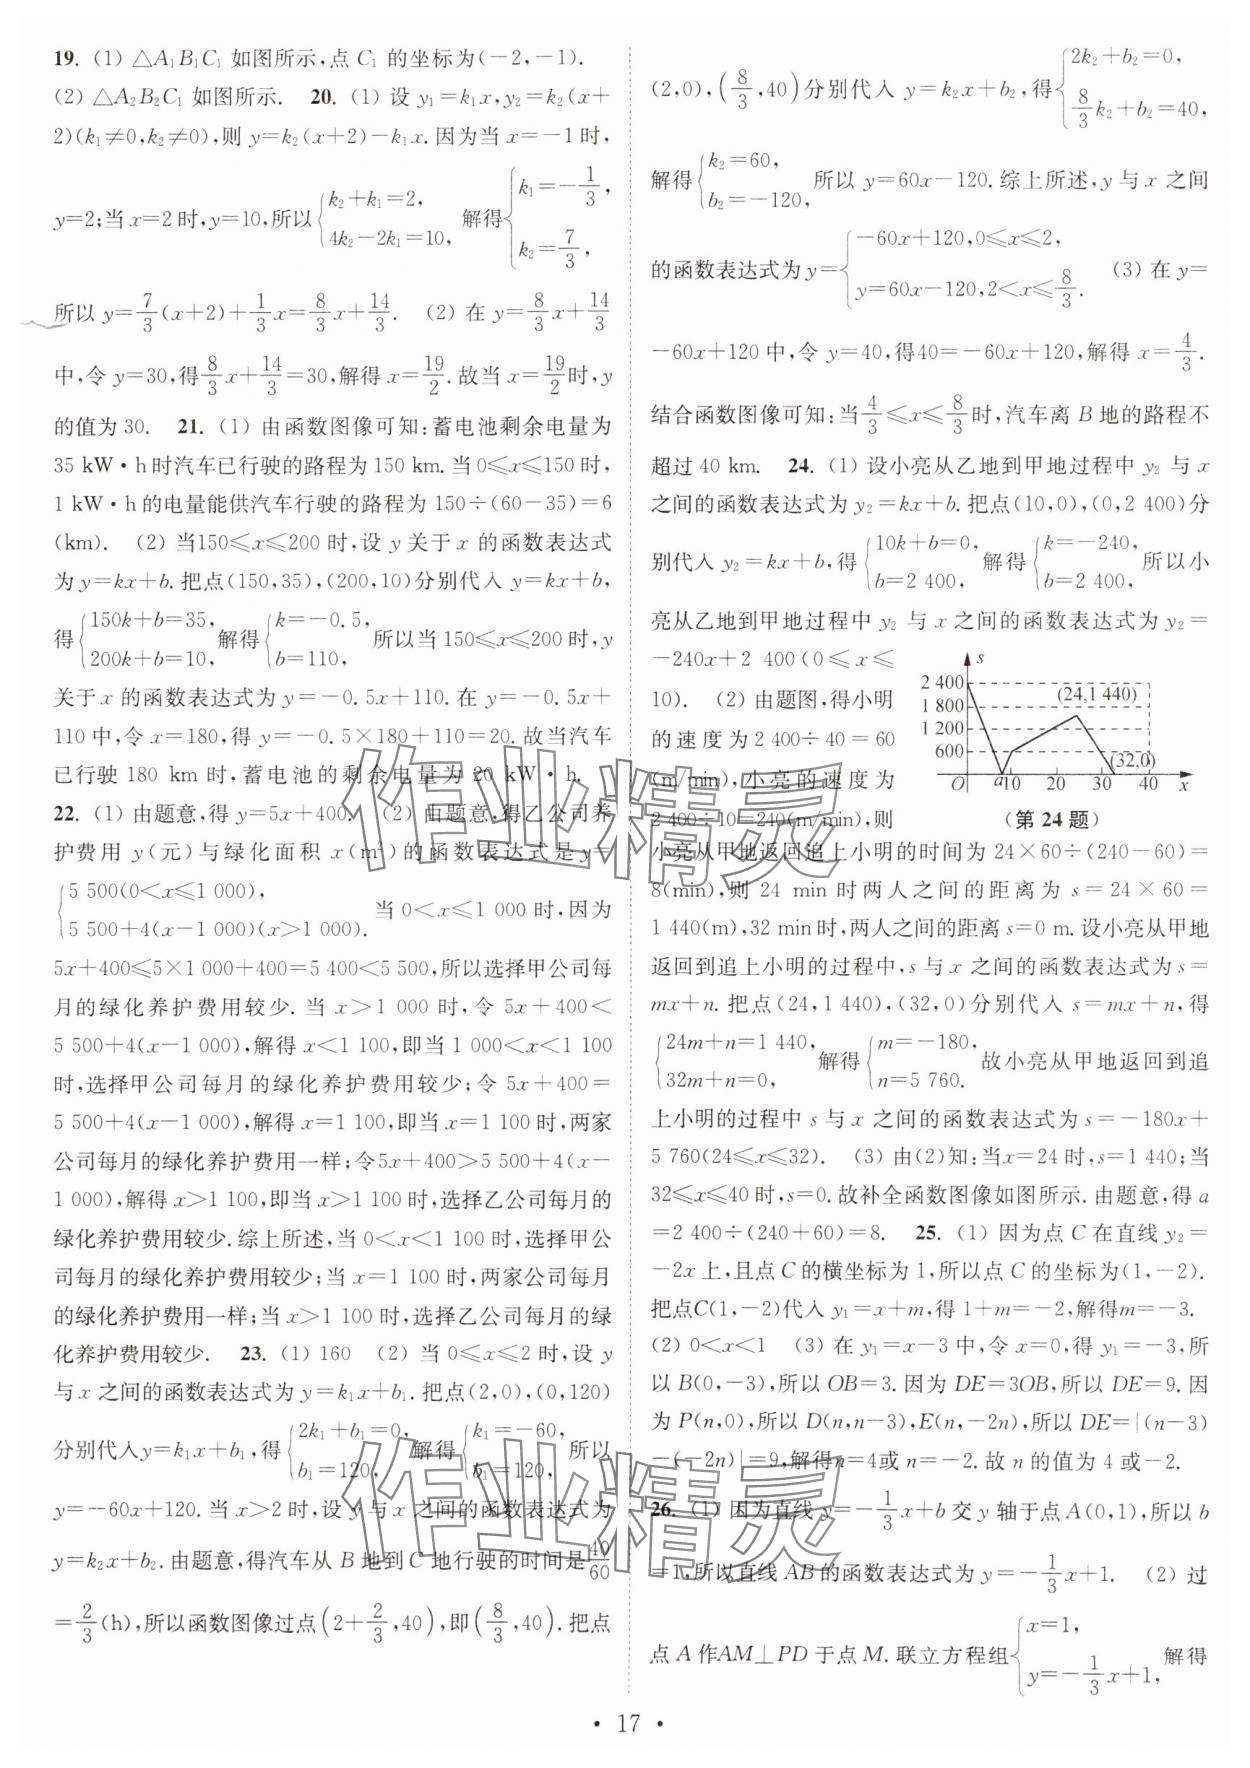 19. (1) △A₁B₁C₁ 如图所示,点 C₁ 的坐标为(-2,-1).
(2) △A₂B₂C₁ 如图所示. 20. (1) 设 y₁=k₁x,y₂=k₂(x+
2)(k₁≠0,k₂≠0),则 y=k₂(x+2)-k₁x. 因为当 x=-1 时,
y=2;当 x=2 时,y=10,所以{k₂+k₁=2, 4k₂-2k₁=10, 解得{k₁=-1/3, k₂=7/3,
所以 y=7/3(x+2)+1/3x=8/3x+14/3. (2) 在 y=8/3x+14/3
中,令 y=30,得8/3x+14/3=30,解得 x=19/2. 故当 x=19/2时,y
的值为 30. 21. (1) 由函数图像可知:蓄电池剩余电量为
35 kW·h时汽车已行驶的路程为 150 km. 当 0≤x≤150 时,
1 kW·h的电量能供汽车行驶的路程为 150÷(60-35)=6
(km). (2) 当150≤x≤200 时,设 y 关于 x 的函数表达式
为 y=kx+b. 把点(150,35),(200,10)分别代入 y=kx+b,
得{150k+b=35, 200k+b=10, 解得{k=-0.5, b=110, 所以当 150≤x≤200 时,y
关于 x 的函数表达式为 y=-0.5x+110. 在 y=-0.5x+
110 中,令 x=180,得 y=-0.5×180+110=20. 故当汽车
已行驶 180 km 时,蓄电池的剩余电量为 20 kW·h.
22. (1) 由题意,得 y=5x+400. (2) 由题意,得乙公司养
护费用 y(元)与绿化面积 x(m²)的函数表达式是 y=
{5 500(0<x≤1 000), 5 500+4(x-1 000)(x>1 000). 当 0<x≤1 000 时,因为
5x+400≤5×1 000+400=5 400<5 500,所以选择甲公司每
月的绿化养护费用较少. 当 x>1 000 时,令 5x+400<
5 500+4(x-1 000),解得 x<1 100,即当 1 000<x<1 100
时,选择甲公司每月的绿化养护费用较少;令 5x+400=
5 500+4(x-1 000),解得 x=1 100,即当 x=1 100 时,两家
公司每月的绿化养护费用一样;令5x+400>5 500+4(x-
1 000),解得 x>1 100,即当 x>1 100 时,选择乙公司每月的
绿化养护费用较少. 综上所述,当 0<x<1 100 时,选择甲公
司每月的绿化养护费用较少;当 x=1 100 时,两家公司每月
的绿化养护费用一样;当 x>1 100 时,选择乙公司每月的绿
化养护费用较少. 23. (1) 160 (2) 当 0≤x≤2 时,设 y
与 x 之间的函数表达式为 y=k₁x+b₁. 把点(2,0),(0,120)
分别代入y=k₁x+b₁,得{2k₁+b₁=0, b₁=120, 解得{k₁=-60, b₁=120, 所以
y=-60x+120. 当 x>2 时,设 y 与 x 之间的函数表达式为
y=k₂x+b₂. 由题意,得汽车从 B 地到 C 地行驶的时间是40/60
=2/3(h),所以函数图像过点(2+2/3,40),即(8/3,40). 把点
(2,0),(8/3,40)分别代入 y=k₂x+b₂,得{2k₂+b₂=0, 8/3k₂+b₂=40,
解得{k₂=60, b₂=-120, 所以 y=60x-120. 综上所述,y 与 x 之间
的函数表达式为 y={-60x+120,0≤x≤2, y=60x-120,2<x≤8/3. (3) 在 y=
-60x+120 中,令 y=40,得40=-60x+120,解得 x=4/3.
结合函数图像可知:当4/3≤x≤8/3时,汽车离 B 地的路程不
超过 40 km. 24. (1) 设小亮从乙地到甲地过程中 y₂ 与 x
之间的函数表达式为 y₂=kx+b. 把点(10,0),(0,2 400)分
别代入 y₂=kx+b,得{10k+b=0, b=2 400, 解得{k=-240, b=2 400, 所以小
亮从乙地到甲地过程中 y₂ 与 x 之间的函数表达式为 y₂=
-240x+2 400(0≤x≤
10). (2) 由题图,得小明
的速度为 2 400÷40=60
(m/min),小亮的速度为
2 400÷10=240(m/min),则
s
2 400
1 800
1 200
600
(24,1 440)
(32,0)
O a 10 20 30 40 x
(第 24 题)
小亮从甲地返回追上小明的时间为 24×60÷(240-60)=
8(min),则 24 min 时两人之间的距离为 s=24×60=
1 440(m),32 min时,两人之间的距离 s=0 m. 设小亮从甲地
返回到追上小明的过程中,s 与 x 之间的函数表达式为 s=
mx+n. 把点(24,1 440),(32,0)分别代入 s=mx+n,得
{24m+n=1 440, 32m+n=0, 解得{m=-180, n=5 760. 故小亮从甲地返回到追
上小明的过程中 s 与 x 之间的函数表达式为 s=-180x+
5 760(24≤x≤32). (3) 由(2)知:当x=24 时,s=1 440;当
32≤x≤40 时,s=0. 故补全函数图像如图所示. 由题意,得 a
=2 400÷(240+60)=8. 25. (1) 因为点 C 在直线 y₂=
-2x 上,且点 C 的横坐标为 1,所以点 C 的坐标为(1,-2).
把点C(1,-2)代入 y₁=x+m,得 1+m=-2,解得m=-3.
(2) 0<x<1 (3) 在 y₁=x-3 中,令 x=0,得 y₁=-3,所
以 B(0,-3),所以 OB=3. 因为 DE=3OB,所以 DE=9. 因
为 P(n,0),所以 D(n,n-3),E(n,-2n),所以 DE=|(n-3)
-(-2n)|=9,解得n=4或 n=-2. 故 n 的值为 4 或-2.
26. (1) 因为直线 y=-1/3x+b 交 y 轴于点 A(0,1),所以 b
=1,所以直线 AB 的函数表达式为 y=-1/3x+1. (2) 过
点 A 作AM⊥PD 于点 M. 联立方程组{x=1, y=-1/3x+1, 解得
• 17 •
作业精灵
作业精灵